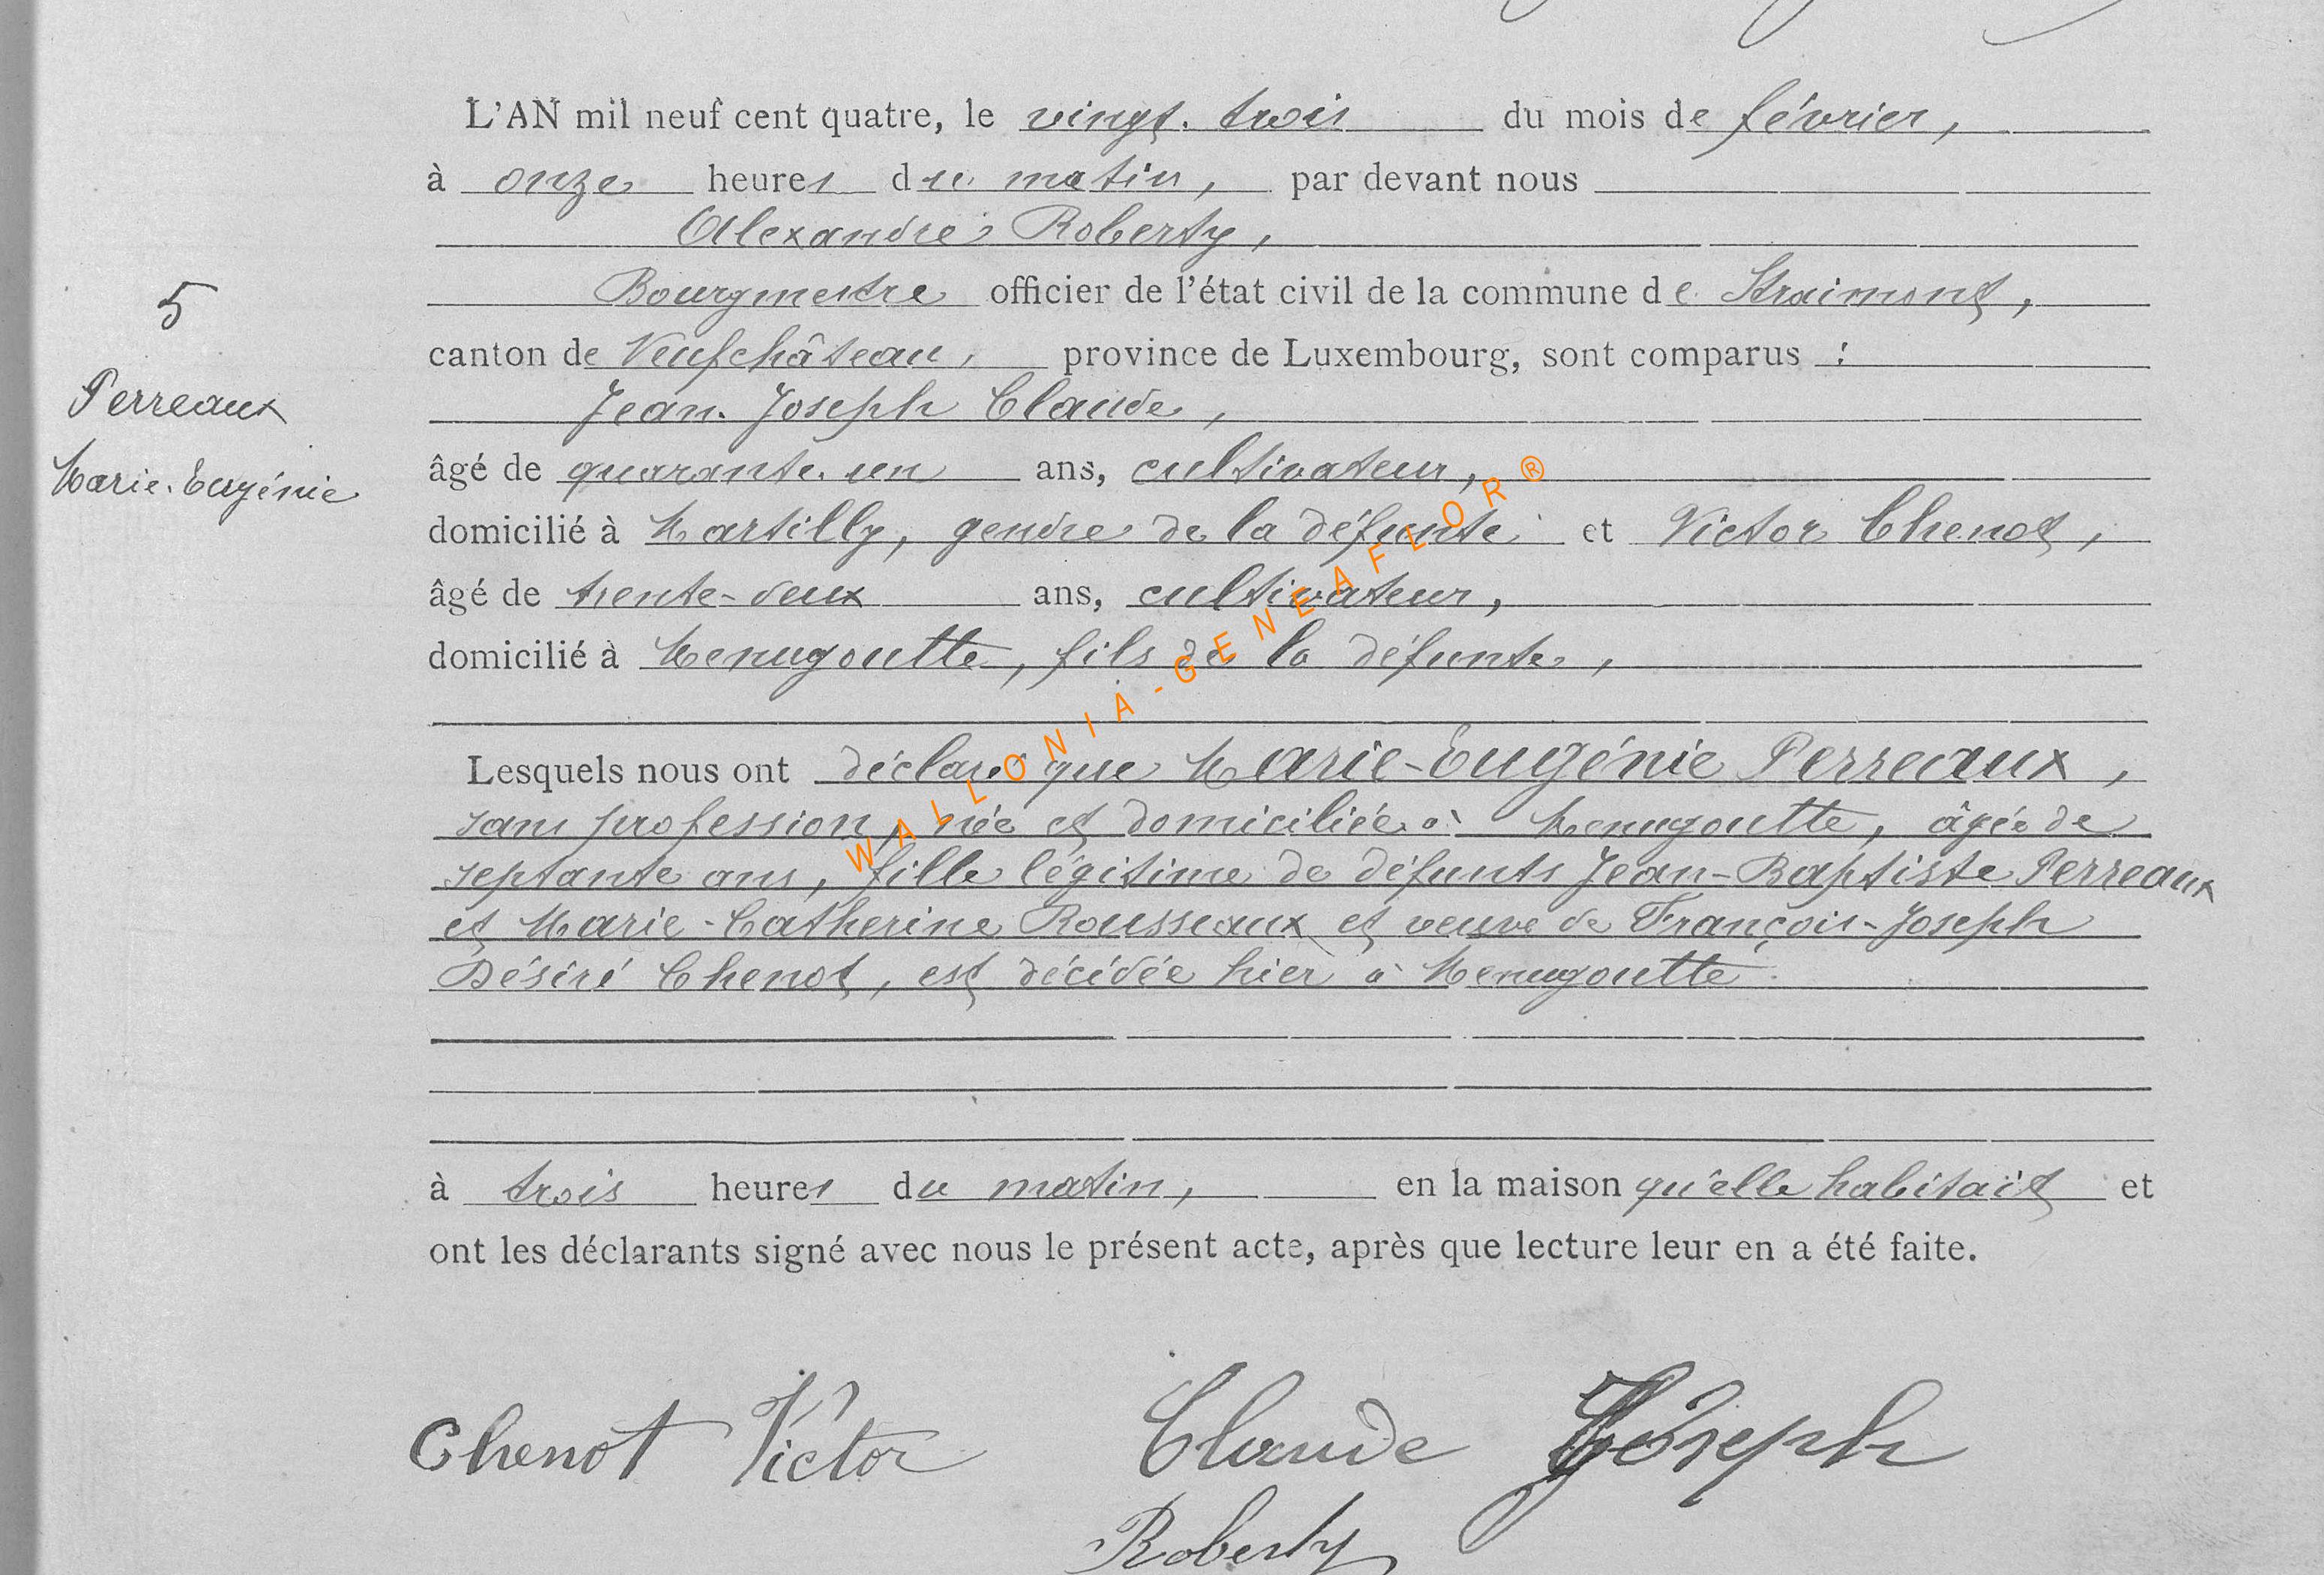 L'AN mil neuf cent quatre, le vingt-trois du mois de février,
à onze heures du matin, par devant nous
Alexandre Roberty,
Bourgmestre officier de l'état civil de la commune de Straimont,
5
canton de Neufchâteau, province de Luxembourg, sont comparus :
Perreaux
Jean-Joseph Claude,
Marie-Eugénie
âgé de quarante-un ans, cultivateur,
domicilié à Martilly, gendre de la défunte et Victor Chenot,
âgé de trente-deux ans, cultivateur,
domicilié à Menugoutte, fils de la défunte,
Lesquels nous ont déclaré que Marie-Eugénie Perreaux,
sans profession, née et domiciliée à Menugoutte, âgée de
septante ans, fille légitime de défunts Jean-Baptiste Perreaux
et Marie-Catherine Rousseaux et veuve de François-Joseph
Désiré Chenot, est décédée hier à Menugoutte
à trois heures du matin, en la maison qu'elle habitait et
ont les déclarants signé avec nous le présent acte, après que lecture leur en a été faite.
Chenot Victor Claude Joseph
Roberty
WALLONIA-GENEAFLOR®